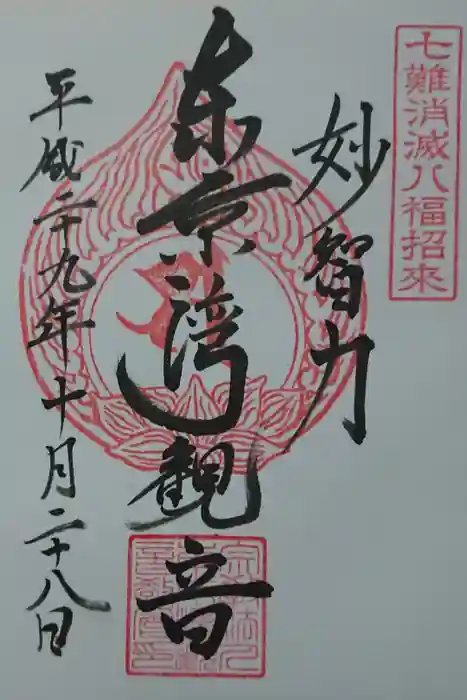 七難消滅八福招來
妙智力
東京湾観音
平成二十九年十月二十八日